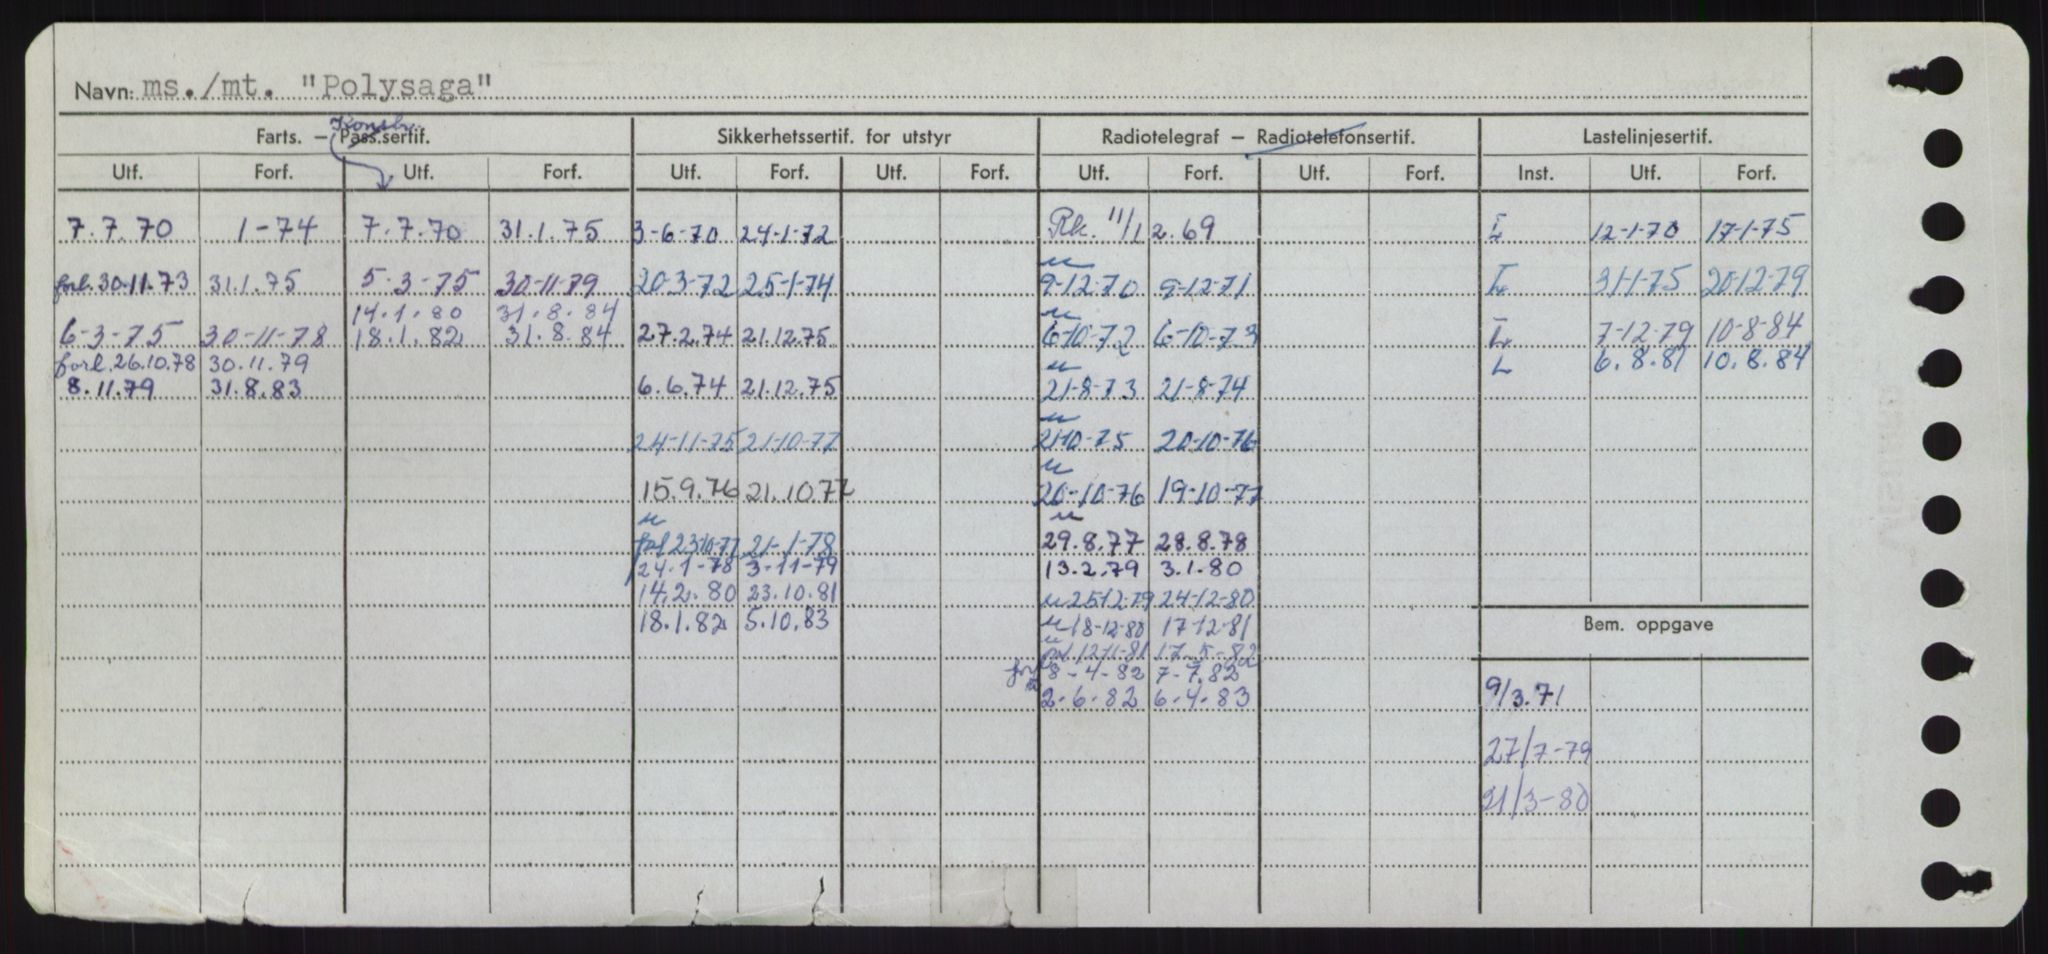 Navn: ms./mt. "Polysaga"
Konstr.
Farts. – Pass.sertif. Sikkerhetssertif. for utstyr Radiotelegraf – Radiotelefonsertif. Lastelinjesertif.
Utf. Forf. Utf. Forf. Utf. Forf. Utf. Forf. Utf. Forf. Utf. Forf. Inst. Utf. Forf.
7.7.70 1-74 7.7.70 31.1.75 3-6-70 24-1-72 Rk. 11/12.69 L 12-1-70 17-1-75
forl. 30.11.73 31.1.75 5-3-75 30-11-79 20-3-72 25-1-74 u 9-12-70 9-12-71 L 31-1-75 20-12-79
14.1.80 31.8.84
6-3-75 30-11-78 18.1.82 31.8.84 27.2.74 21.12.75 u 6-10-72 6-10-73 L 7-12-79 10-8-84
forl. 26.10.78 30.11.79 L 6.8.81 10.8.84
8.11.79 31.8.83 6.6.74 21.12.75 u 21-8-73 21-8-74
24-11-75 21-10-77 u 21-10-75 20-10-76
15.9.76 21.10.77 u 20-10-76 19-10-77
u forl 23-10-77 21-1-78 u 29.8.77 28.8.78
24-1-78 3-11-79 13.2.79 3.1.80
14.2.80 23.10.81 u 25-12-79 24-12-80
18.1.82 5.10.83 u 18-12-80 17-12-81
Bem. oppgave
u forl 12-11-81 17-5-82
forl 8-4-82 7-7.82
2-6-82 6-4-83
9/3.71
27/7-79
21/3-80